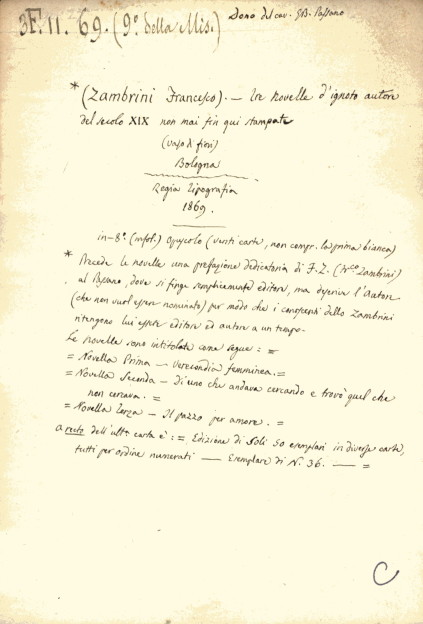 3F.11.69. (9º della Mis.)
Dono del cav. GB. Passano
* (Zambrini Francesco). — Tre novelle d'ignoto autore
del secolo XIX non mai fin qui stampate
(vaso di fiori)
Bologna
Regia Tipografia
1869.
in-8º. (infol.) opuscolo (venti carte, non compr. la prima bianca)
* Precede le novelle una prefazione dedicatoria di F. Z. ( Zambrini)
al Passano, dove si finge semplicemente editore, ma descrive l'Autore
(che non vuol essere nominato) per modo che i conoscenti dello Zambrini
ritengono lui essere editore ed autore a un tempo.
Le novelle sono intitolate come segue : =
= Novella Prima — Verecondia femminea. =
= Novella Seconda — Di uno che andava cercando e trovò quel che
non cercava. =
= Novella Terza — Il pazzo per amore. =
a recto dell'ultª carta è : = Edizione di soli 50 esemplari in diverse carte,
tutti per ordine numerati — Esemplare di N. 36. — =
C